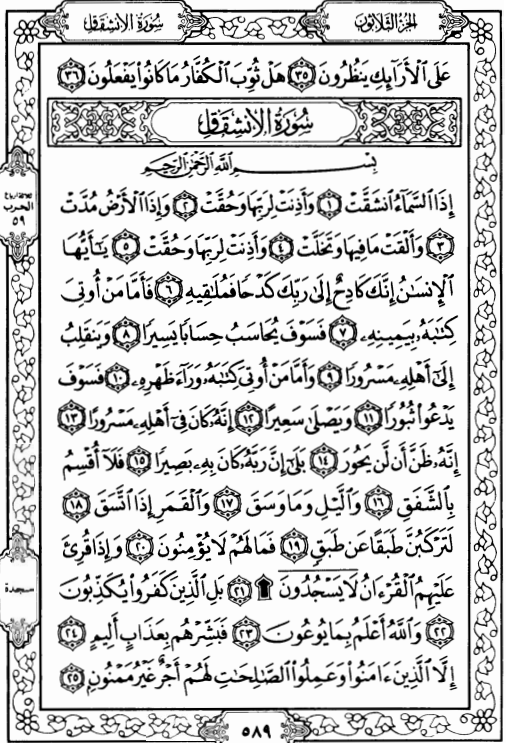 سُورَةُ الِانشِقَاقِ
الجُزْءُ الثَّلَاثُونَ
عَلَى الْأَرَائِكِ يَنظُرُونَ ٣٥ هَلْ ثُوِّبَ الْكُفَّارُ مَا كَانُوا يَفْعَلُونَ ٣٦
سُورَةُ الِانشِقَاقِ
بِسْمِ اللَّهِ الرَّحْمَٰنِ الرَّحِيمِ
إِذَا السَّمَاءُ انشَقَّتْ ١ وَأَذِنَتْ لِرَبِّهَا وَحُقَّتْ ٢ وَإِذَا الْأَرْضُ مُدَّتْ
٣ وَأَلْقَتْ مَا فِيهَا وَتَخَلَّتْ ٤ وَأَذِنَتْ لِرَبِّهَا وَحُقَّتْ ٥ يَٰأَيُّهَا
الْإِنسَٰنُ إِنَّكَ كَادِحٌ إِلَىٰ رَبِّكَ كَدْحًا فَمُلَٰقِيهِ ٦ فَأَمَّا مَنْ أُوتِيَ
كِتَٰبَهُۥ بِيَمِينِهِۦ ٧ فَسَوْفَ يُحَاسَبُ حِسَابًا يَسِيرًا ٨ وَيَنقَلِبُ
إِلَىٰ أَهْلِهِۦ مَسْرُورًا ٩ وَأَمَّا مَنْ أُوتِيَ كِتَٰبَهُۥ وَرَاءَ ظَهْرِهِۦ ١٠ فَسَوْفَ
يَدْعُوا ثُبُورًا ١١ وَيَصْلَىٰ سَعِيرًا ١٢ إِنَّهُۥ كَانَ فِي أَهْلِهِۦ مَسْرُورًا ١٣
إِنَّهُۥ ظَنَّ أَن لَّن يَحُورَ ١٤ بَلَىٰ إِنَّ رَبَّهُۥ كَانَ بِهِۦ بَصِيرًا ١٥ فَلَا أُقْسِمُ
بِالشَّفَقِ ١٦ وَالَّيْلِ وَمَا وَسَقَ ١٧ وَالْقَمَرِ إِذَا اتَّسَقَ ١٨
لَتَرْكَبُنَّ طَبَقًا عَن طَبَقٍ ١٩ فَمَا لَهُمْ لَا يُؤْمِنُونَ ٢٠ وَإِذَا قُرِئَ
عَلَيْهِمُ الْقُرْءَانُ لَا يَسْجُدُونَ ۩ ٢١ بَلِ الَّذِينَ كَفَرُوا يُكَذِّبُونَ
٢٢ وَاللَّهُ أَعْلَمُ بِمَا يُوعُونَ ٢٣ فَبَشِّرْهُم بِعَذَابٍ أَلِيمٍ ٢٤
إِلَّا الَّذِينَ ءَامَنُوا وَعَمِلُوا الصَّٰلِحَٰتِ لَهُمْ أَجْرٌ غَيْرُ مَمْنُونٍ ٢٥
الحزب
٥٩
سجدة
٥٨٩